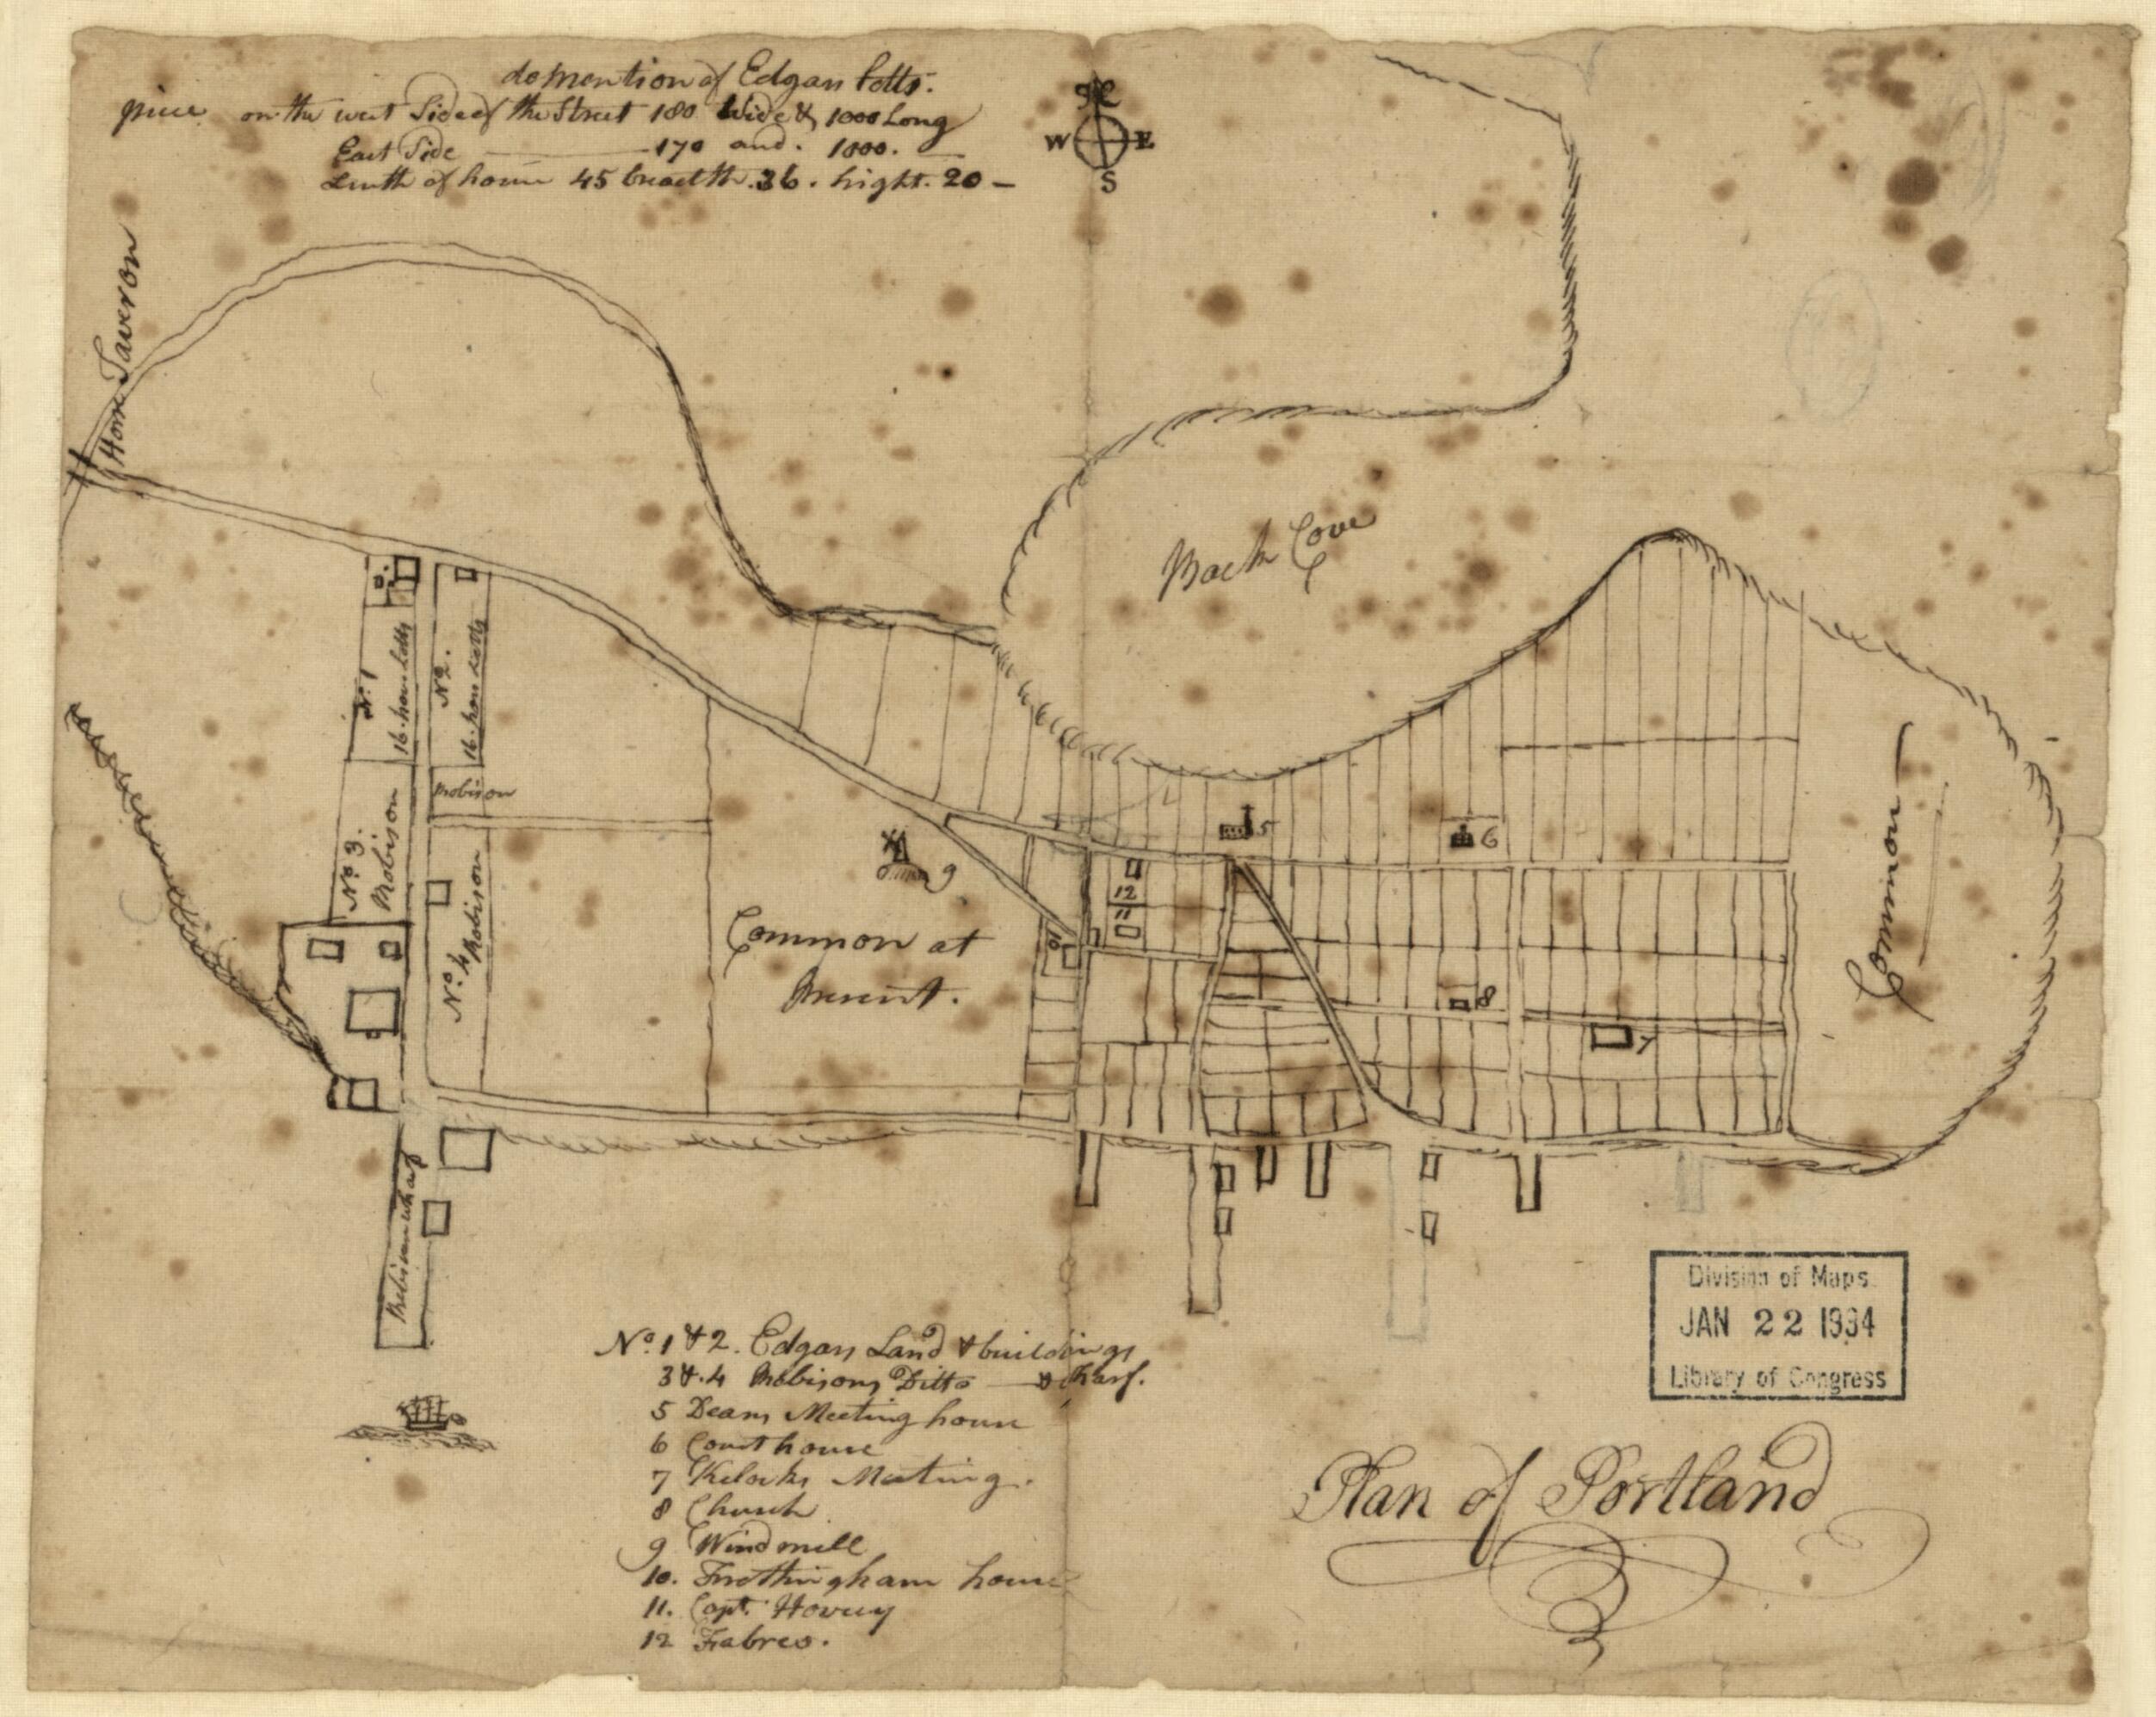 domention of Edgars lotts.
piece on the west Side of the Street 180 Wide & 1000 Long
East Side 170 and. 1000.
Lenth of house 45 breadth. 36. hight. 20
N
W E
S
Hors Taveron
Back Cove
No. 1
16 hous Lotts
No 2.
16 hous Lotts
Robison
No 3.
Robison
No. 4 Robison
9
Common at
Present.
5
6
12
11
10
8
7
Common
Robison wharf
No. 1 & 2. Edgars Land & buildings
3 & .4 Robisons Ditto & wharf.
5 Deans Meeting house
6 Court house
7 Kelocks Meeting.
8 Church
9 Windmill
10. Frothingham house
11. Capt. Hovey
12 Fabres.
Division of Maps
JAN 22 1934
Library of Congress
Plan of Portland